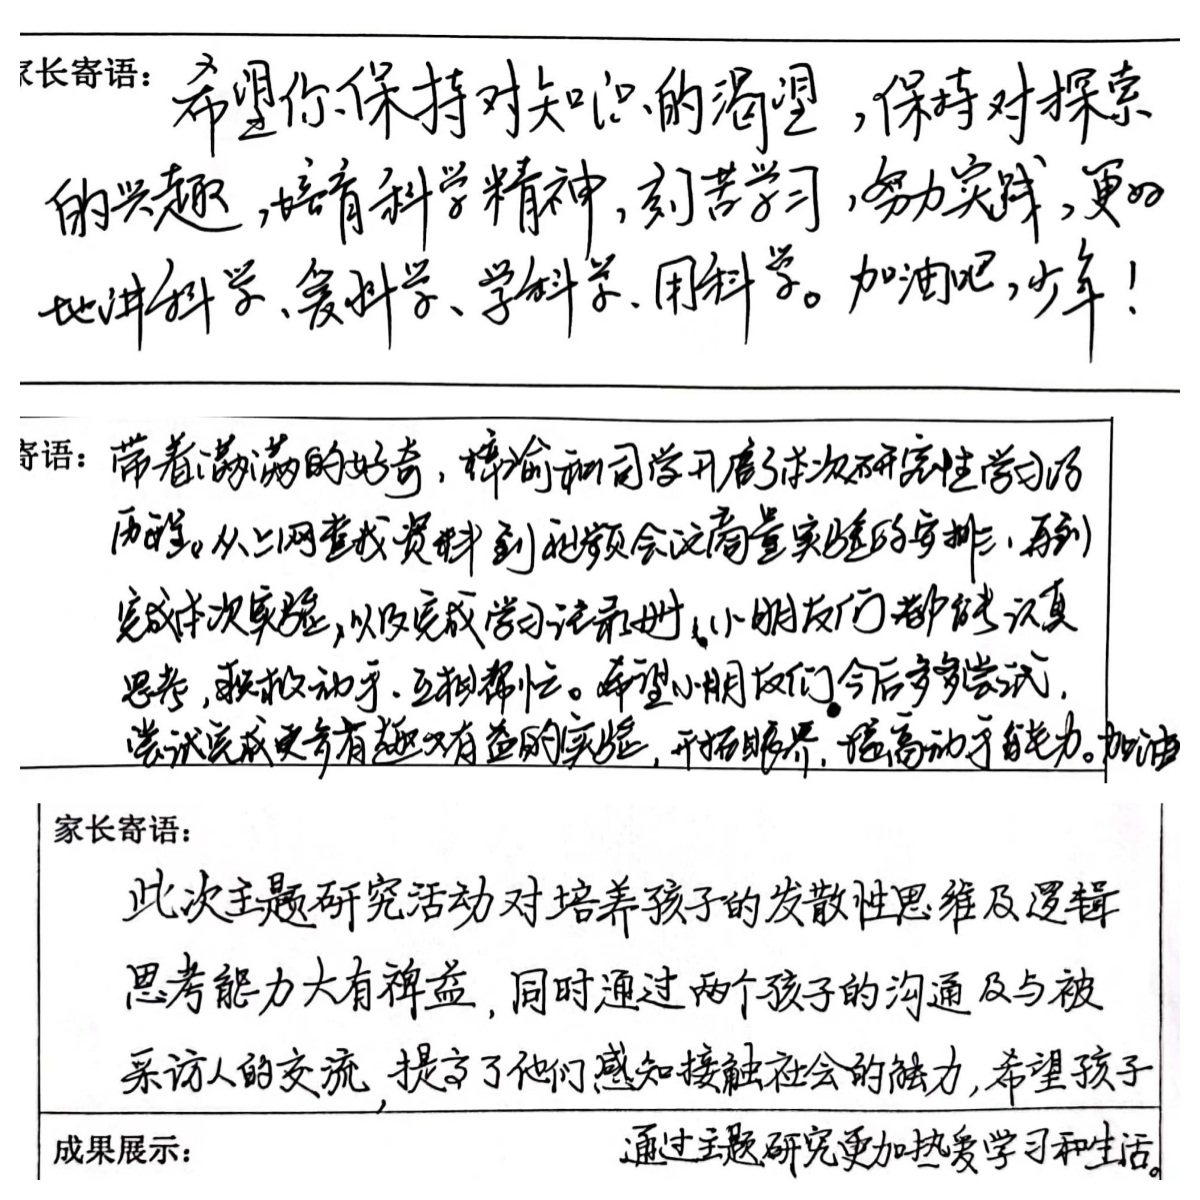 家长寄语：希望你保持对知识的渴望，保持对探索
的兴趣，培育科学精神，刻苦学习，努力实践，更好
地讲科学、爱科学、学科学、用科学。加油吧，少年！
寄语：带着满满的好奇，梓渝和同学开启了本次研究性学习的
历程。从上网查找资料到视频会议商量实验的安排，再到
完成本次实验，以及完成学习记录册，小朋友们都能认真
思考，积极动手，互相帮忙。希望小朋友们今后多多尝试，
尝试完成更多有趣又有益的实验，开拓眼界，提高动手能力。加油
家长寄语：
此次主题研究活动对培养孩子的发散性思维及逻辑
思考能力大有裨益，同时通过两个孩子的沟通及与被
采访人的交流，提高了他们感知接触社会的能力，希望孩子
通过主题研究更加热爱学习和生活。
成果展示：